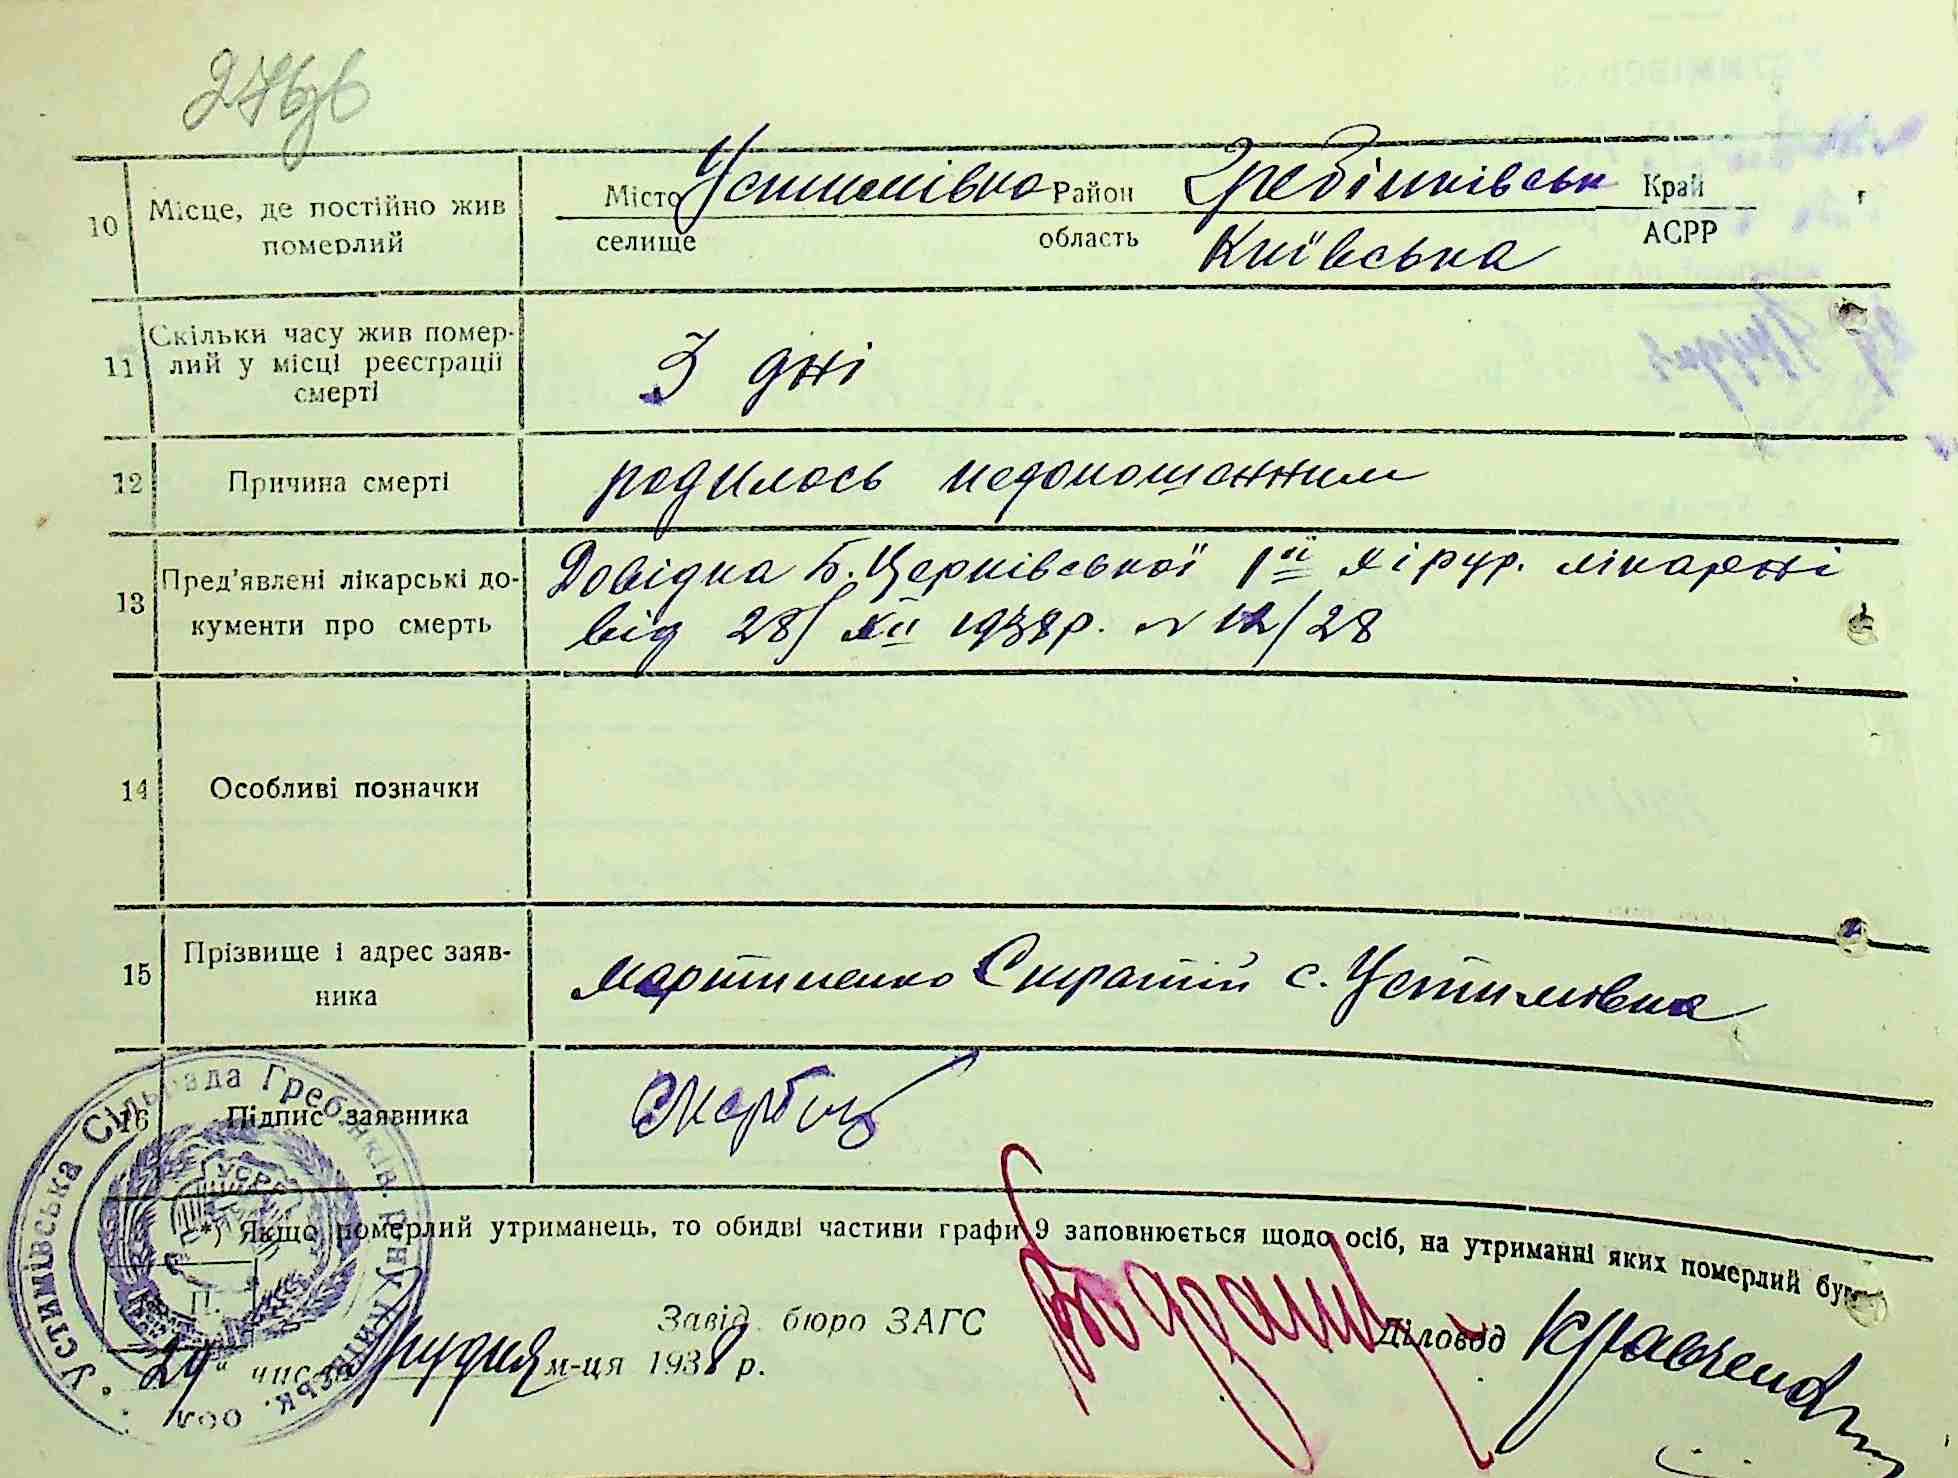 10 Місце, де постійно жив померлий
Місто Устимівка Район Гребінківськ Край
селище область Київська АСРР
11 Скільки часу жив помер-
лий у місці реєстрації
смерті
3 дні
12 Причина смерті родилось недоношенним
13 Пред'явлені лікарські до-
кументи про смерть
Довідка Б. Церківської 1ії хірур. лікарні
від 28/XII 1938р. № 12/28
14 Особливі позначки
15 Прізвище і адрес заяв-
ника
Мартиненко с. Устимівка
16 Підпис заявника
*) Якщо померлий утриманець, то обидві частини графи 9 заповнюється щодо осіб, на утриманні яких померлий був
Завід. бюро ЗАГС
Діловод Кравченко
"29" числа Грудня м-ця 1938 р.
Устимівська Сільрада Гребінків. р-ну Київськ. обл.
УСРР
П.